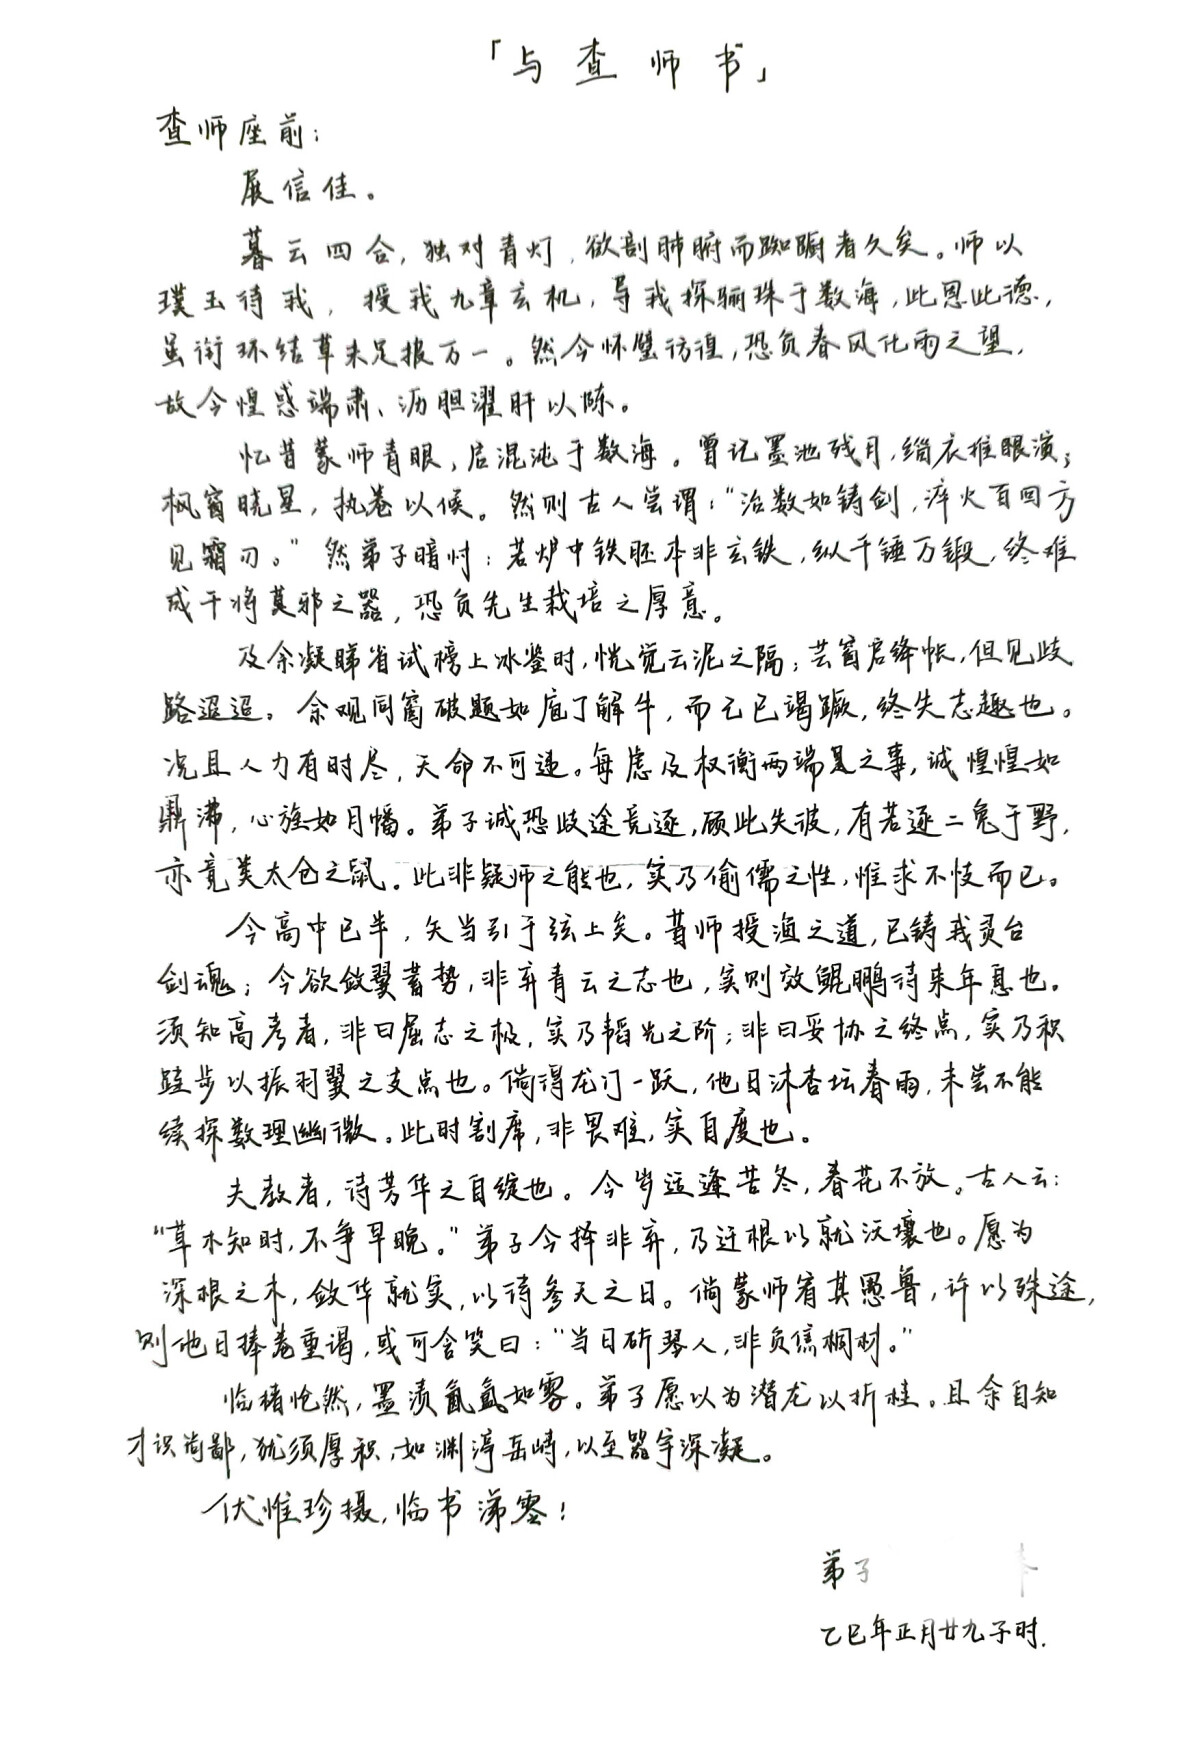 「与查师书」
查师座前:
展信佳。
暮云四合,独对青灯,欲剖肺腑而踟蹰者久矣。师以
璞玉待我,授我九章玄机,导我探骊珠于数海,此恩此德,
虽衔环结草未足报万一。然今怀璧彷徨,恐负春风化雨之望,
故今惶惑端肃、沥胆濯肝以陈。
忆昔蒙师青眼,启混沌于数海。曾记墨池残月,缁衣推眼演;
枫窗晓星,执卷以候。然则古人尝谓:“治数如铸剑,淬火百回方
见霜刃。”然弟子暗忖:若炉中铁胚本非玄铁,纵千锤万锻,终难
成干将莫邪之器,恐负先生栽培之厚意。
及余凝睇省试榜上冰鉴时,恍觉云泥之隔;芸窗启绛帐,但见歧
路迢迢。余观同窗破题如庖丁解牛,而己已竭蹶,终失志趣也。
况且人力有时尽,天命不可违。每虑及权衡两端之事,诚惶惶如
鼎沸,心旌如月幡。弟子诚恐歧途竞逐,顾此失彼,有若逐二兔于野,
亦竟类太仓之鼠。此非疑师之能也,实乃偷儒之性,惟求不忮而已。
今高中已半,矢当引于弦上矣。昔师授渔之道,已铸我灵台
剑魂;今欲敛翼蓄势,非弃青云之志也,实则效鲲鹏待来年息也。
须知高考者,非曰屈志之极,实乃韬光之阶;非曰妥协之终点,实乃积
跬步以振羽翼之支点也。倘得龙门一跃,他日沐杏坛春雨,未尝不能
续探数理幽微。此时割席,非畏难,实自度也。
夫教者,待芳华之自绽也。今岁运逢苦冬,春花不放。古人云:
“草木知时,不争早晚。”弟子今择非弃,乃迁根以就沃壤也。愿为
深根之木,敛华就实,以待参天之日。倘蒙师宥其愚鲁,许以殊途,
则他日捧卷重谒,或可含笑曰:“当日斫琴人,非负焦桐材。”
临楮怆然,墨渍氤氲如雾。弟子愿以为潜龙以折桂。且余自知
才识谫鄙,犹须厚积,如渊渟岳峙,以至器宇深凝。
伏惟珍摄,临书涕零!
弟子
乙巳年正月廿九子时.